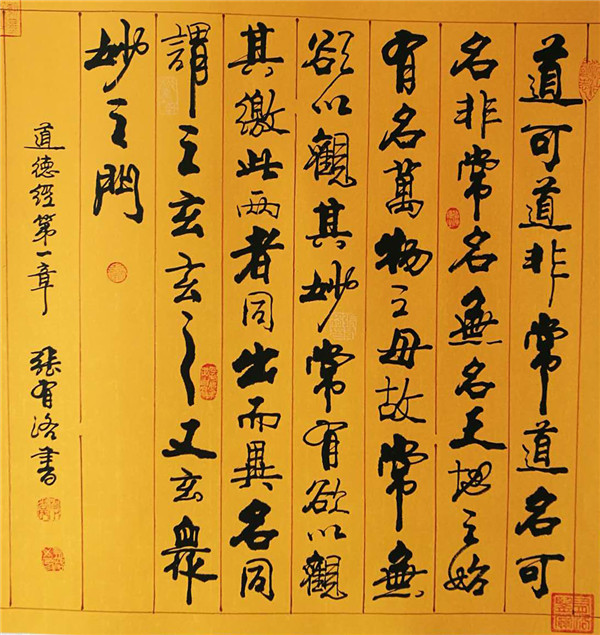 道可道非常道名可
名非常名無名天地之始
有名萬物之母故常無
欲以觀其妙常有欲以觀
其徼此两者同出而異名同
謂之玄玄之又玄眾
妙之門
道德經第一章 張有洛書